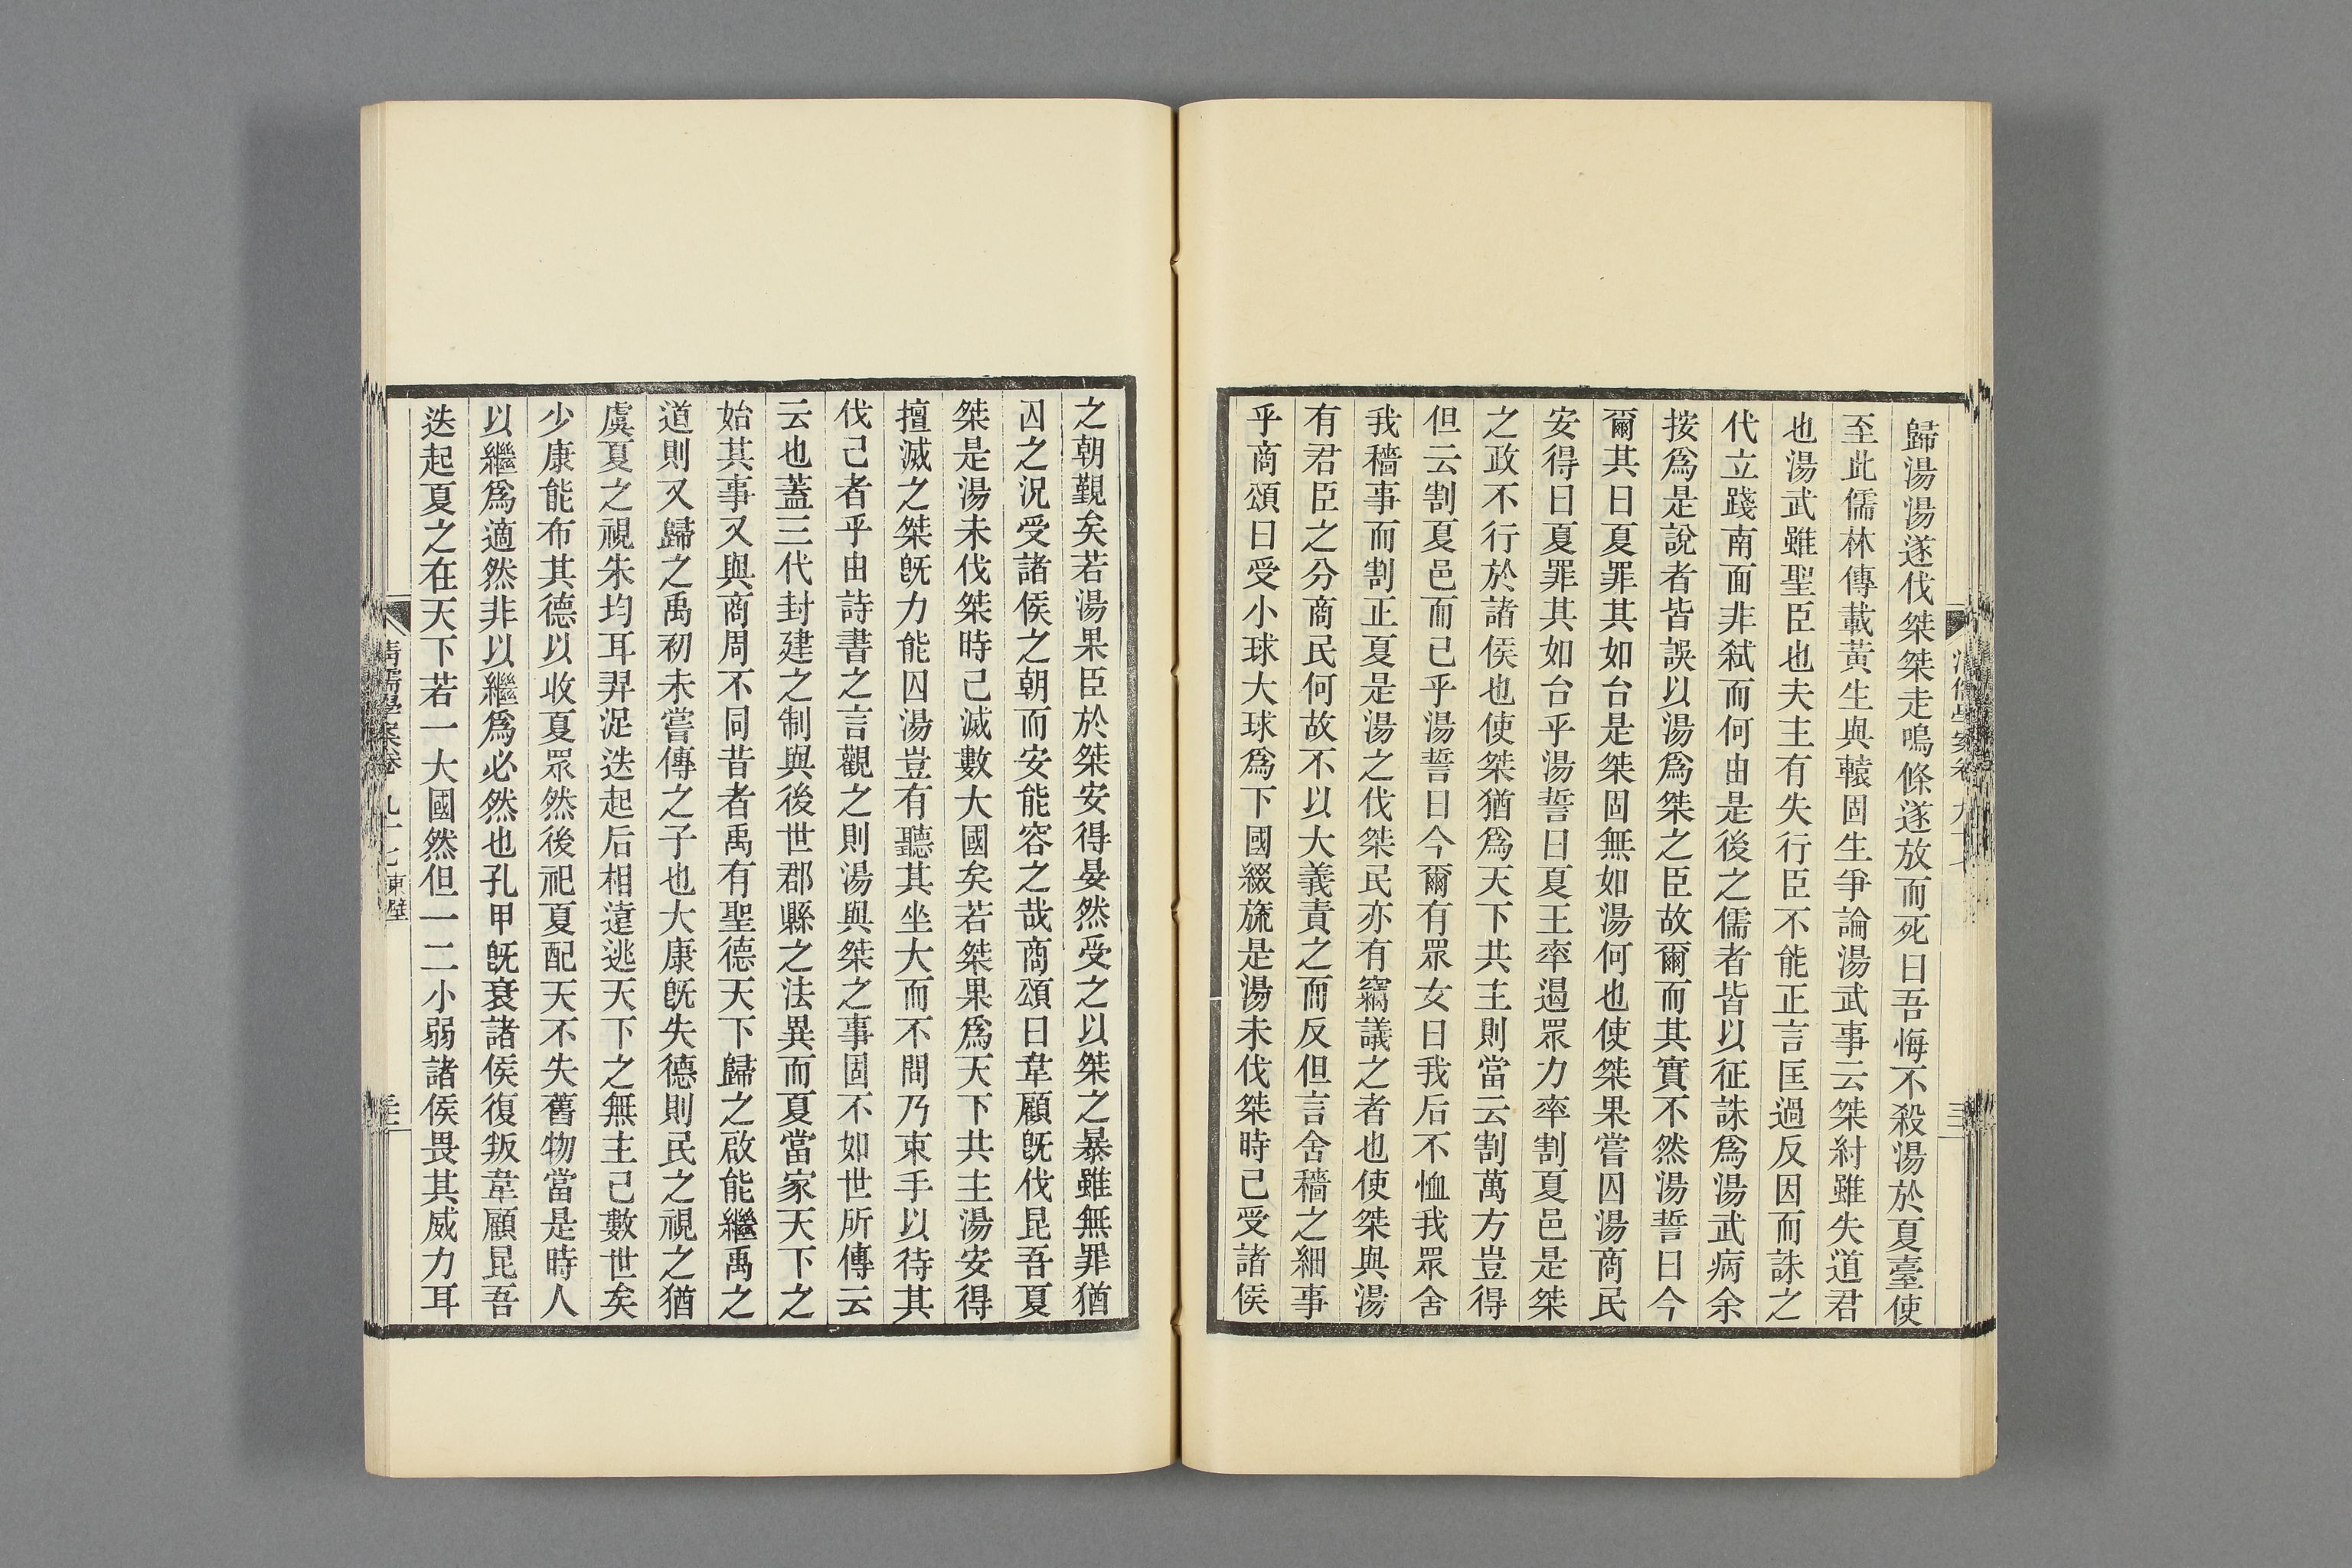 歸湯湯遂伐桀桀走鳴條遂放而死曰吾悔不殺湯於夏臺使
至此儒林傳載黃生與轅固生爭論湯武事云桀紂雖失道君
也湯武雖聖臣也夫主有失行臣不能正言匡過反因而誅之
代立踐南面非弒而何由是後之儒者皆以征誅爲湯武病余
按爲是說者皆誤以湯爲桀之臣故爾而其實不然湯誓曰今
爾其曰夏罪其如台是桀固無如湯何也使桀果嘗囚湯商民
安得曰夏罪其如台乎湯誓曰夏王率遏眾力率割夏邑是桀
之政不行於諸侯也使桀猶爲天下共主則當云割萬方豈得
但云割夏邑而已乎湯誓曰今爾有眾女曰我后不恤我眾舍
我穡事而割正夏是湯之伐桀民亦有竊議之者也使桀與湯
有君臣之分商民何故不以大義責之而反但言舍穡之細事
乎商頌曰受小球大球爲下國綴旒是湯未伐桀時已受諸侯
之朝覲矣若湯果臣於桀安得晏然受之以桀之暴雖無罪猶
囚之況受諸侯之朝而安能容之哉商頌曰韋顧旣伐昆吾夏
桀是湯未伐桀時已滅數大國矣若桀果爲天下共主湯安得
擅滅之桀旣力能囚湯豈有聽其坐大而不問乃束手以待其
伐己者乎由詩書之言觀之則湯與桀之事固不如世所傳云
云也蓋三代封建之制與後世郡縣之法異而夏當家天下之
始其事又與商周不同昔者禹有聖德天下歸之啟能繼禹之
道則又歸之禹初未嘗傳之子也大康旣失德則民之視之猶
虞夏之視朱均耳羿浞迭起后相遠逃天下之無主已數世矣
少康能布其德以收夏眾然後祀夏配天不失舊物當是時人
以繼爲適然非以繼爲必然也孔甲旣衰諸侯復叛韋顧昆吾
迭起夏之在天下若一大國然但一二小弱諸侯畏其威力耳
清儒學案卷九十七 東壁